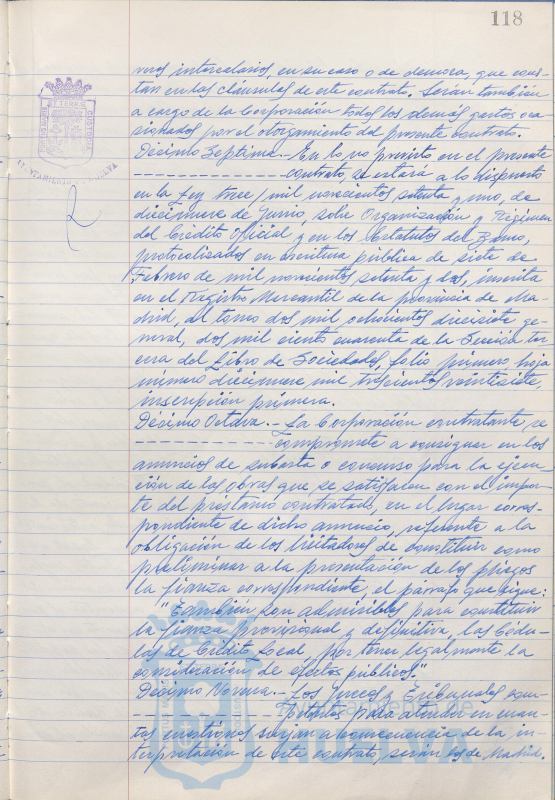 118
reses intercalarios, en su caso o de demora, que cons-
tan en las cláusulas de este contrato. Serán también
a cargo de la Corporación todos los demás gastos oca
sionados por el otorgamiento del presente contrato.
Décimo Septima.- En lo no previsto en el presente
contrato, se estará a lo dispuesto
en la Ley trece/mil novecientos setenta y uno, de
diecinueve de Junio, sobre Organización y Régimen
del Crédito Oficial y en los Estatutos del Banco,
protocolizados en escritura pública de siete de
Febrero de mil novecientos setenta y dos, inscrita
en el Registro Mercantil de la provincia de Ma-
drid, al tomo dos mil ochocientos diecisiete ge-
neral, dos mil ciento cuarenta de la Sección ter-
cera del Libro de Sociedades, folio primero, hoja
número diecinueve mil trescientos veintisiete,
inscripción primera.
Décimo Octava.- La Corporación contratante se
compromete a consignar en los
anuncios de subasta o concurso para la ejecu-
ción de las obras que se satisfagan con el impor-
te del préstamo contratado, en el lugar corres-
pondiente de dicho anuncio, referente a la
obligación de los licitadores de constituir como
preliminar a la presentación de los pliegos
la fianza correspondiente, el párrafo que sigue:
"También son admisibles para constituir
la fianza provisional y definitiva, las Cédu-
las de Crédito Local, por tener legalmente la
consideración de efectos públicos."
Décimo Novena.- Los Jueces y Tribunales com-
petentes para entender en cuan-
tas cuestiones surjan a consecuencia de la in-
terpretación de este contrato, serán los de Madrid.